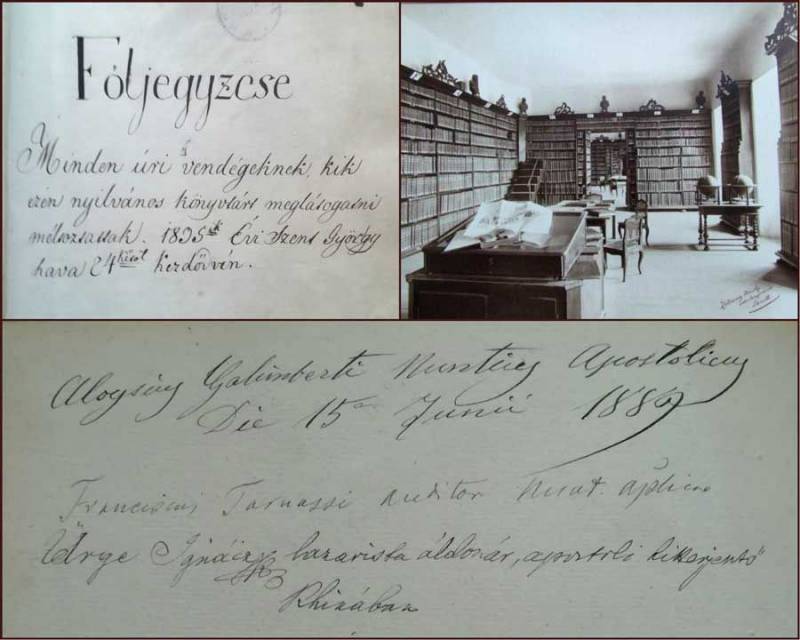 Följegyzése
Minden úri vendégeknek, kik
ezen nyilvános könyvtárt meglátogatni
méltoztattak. 1835ik Évi Szent György
hava 24kétől kezdődvén.
Aloysius Galimberti Nuntius Apostolicus
Die 15a Junii 1889
Franciscus Tarnassi Auditor Nunt. aplicae
Ürge Ignácz lazarista áldozár, apostoli hitterjesztő
Khinában